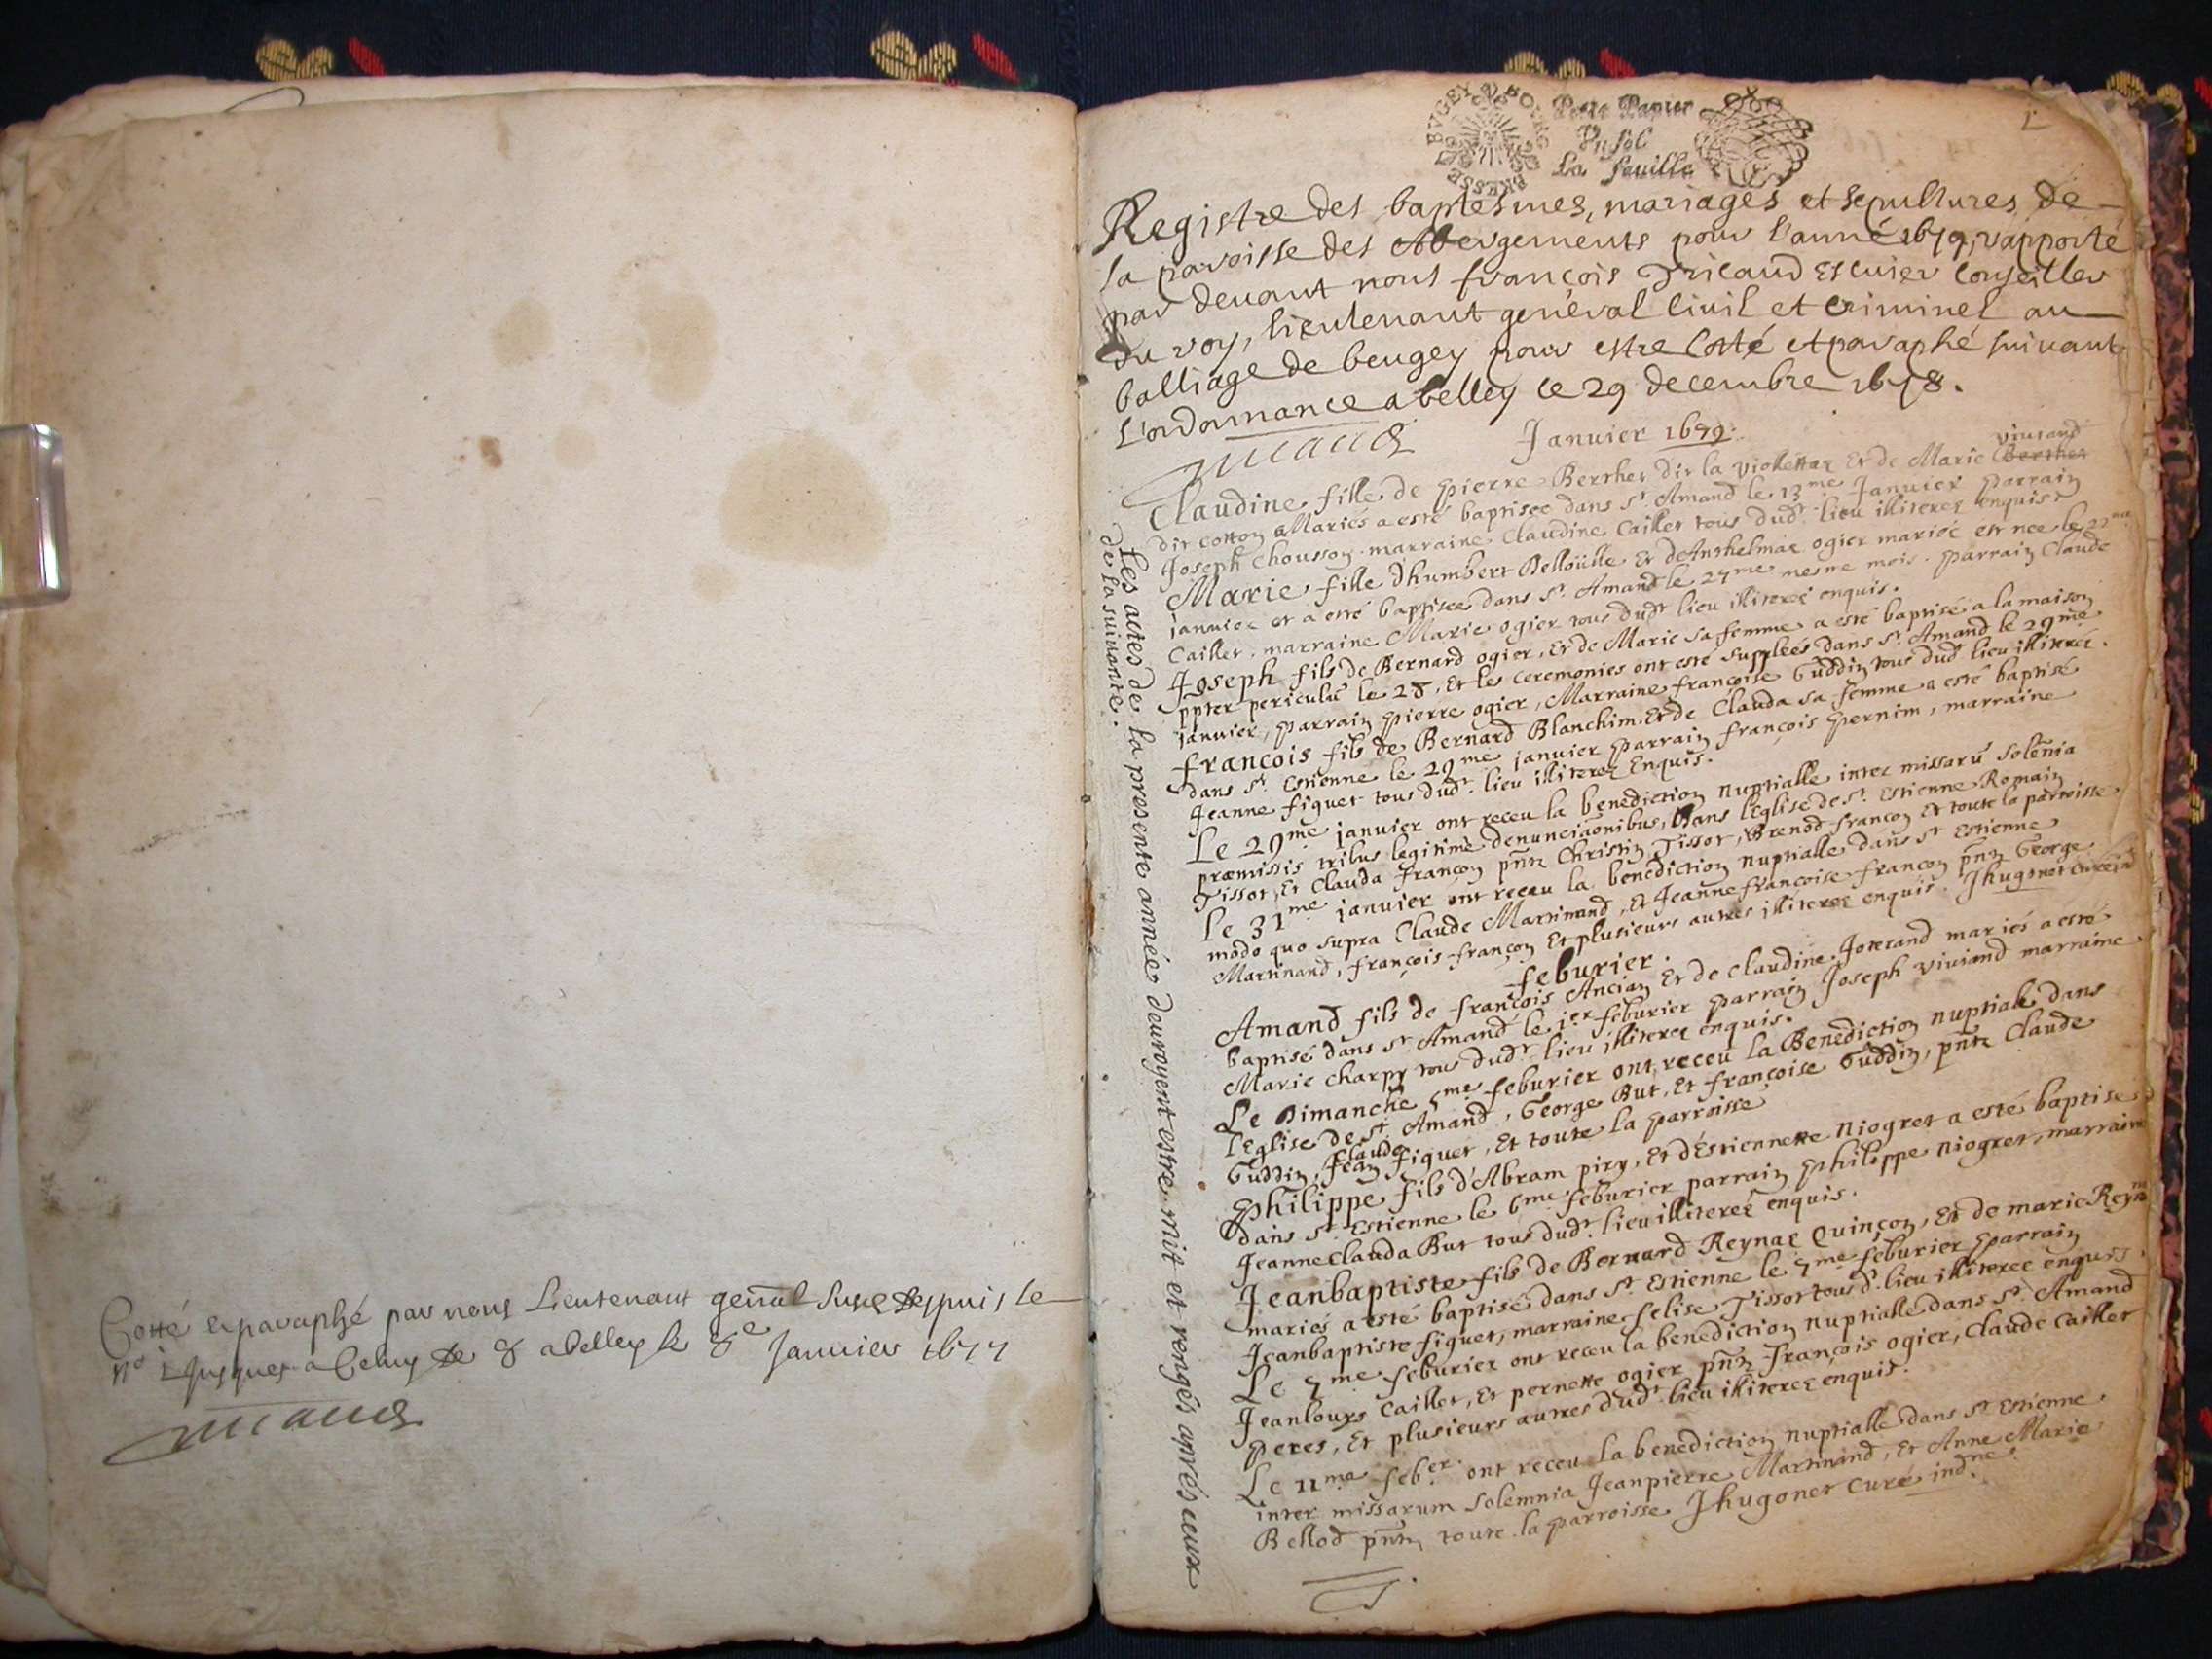 Cotté et paraphé par nous Lieutenant gen̄al susd depuis le
n° 1 jusques a celuy de 8 a belley le 8e Janvier 1677
BVGEY
BRESSE
Petit Papier
Vn sol
La feuille
Registre des baptesmes, mariages et sepultures de
la paroisse des Abergements pour l'anné 1679, rapporté
par devant nous françois Tricaud escuier Conseiller
du roy, lieutenant general Civil et criminel au
balliage de beugey pour estre Cotté et paraphé suivant
L'ordonnance a belley ce 29 decembre 1678.
Janvier 1679.
viurand
Claudine fille de pierre Berthet dit la viollettaz Et de Marie Berthet
dit cotton Mariés a esté baptisée dans St. Amand le 13me Janvier parrain
Joseph Chousson marraine Claudine Caillet tous dudt. lieu illiterez enquist
Marie fille d'humbert Belloülle Et de Anthelmaz ogier mariés est nee le 22me
janvier et a esté baptisee dans St. Amand le 27me mesme mois. parrain Claude
Caillet, marraine Marie ogier tous dudt lieu illiterez enquis.
Joseph fils de Bernard ogier, Et de Marie sa femme a esté baptisé a la maison
ppter periculū le 28, Et les ceremonies ont esté supplées dans St. Amand le 29me
janvier, parrain pierre ogier, Marraine françoise Guddin tous dudt lieu illiterez.
françois fils de Bernard Blanchim Et de Clauda sa femme a esté baptisé
dans St. Estienne le 29me janvier parrain françois pernim, marraine
Jeanne figuet tous dudt. lieu illiterez Enquis.
Le 29me janvier ont receu la benediction nuptialle inter missarū solēnia
præmissis tribus legitimè denunciāonibus, Dans l'Eglise de St. Estienne Romain
Tissot, Et Clauda françon pn̄tz Christin Tissot, Brenod françon Et toute la parroisse.
Le 31me janvier ont receu la benediction nuptialle dans St Estienne
modo quo supra Claude Martinand, Et Jeanne françoise françon pn̄tz George
Martinand, françois françon Et plusieurs autres illiterez enquis. Jhugonet curé ind
feburier.
Amand fils de françois Ancian Et de claudine Joterand mariés a esté
baptisé dans St. Amand le 1er feburier parrain Joseph viviand marraine
Marie charpy tous dudt. lieu illiterez enquis.
Le Dimanche 5me feburier ont receu la Benediction nuptialle dans
l'Eglise de St Amand, George But, Et françoise Guddin, pn̄tz Claude
Guddin, Claude figuet, Et toute la parroisse
philippe fils d'Abram piry, Et d'Estiennette niogret a esté baptisé
dans St. Estienne le 6me feburier parrain philippe niogret, marraine
Jeanne Clauda But tous dudt. lieu illiterez enquis.
Jeanbaptiste fils de Bernard Reynaz Quinçon, Et de marie
mariés a esté baptisé dans St Estienne le 7me feburier parrain
Jeanbaptiste figuet, marraine felise Tissot tous dt. lieu illiterez enquis.
Le 7me feburier ont receu la benediction nuptialle dans St. Amand
Jeanlouys Caillet, Et pernette ogier pn̄tz françois ogier, Claude Caillet
peres, Et plusieurs autres dudt lieu illiterez enquis.
Le 11me feber. ont receu la benediction nuptialle dans St Estienne
inter missarum solemnia Jeanpierre Martinand, Et Anne Marie
Bellod pn̄tz toute la parroisse Jhugonet Curé indne.
Les actes de la presente année devroyent estre mis et rengés aprés ceux
de la suivante.